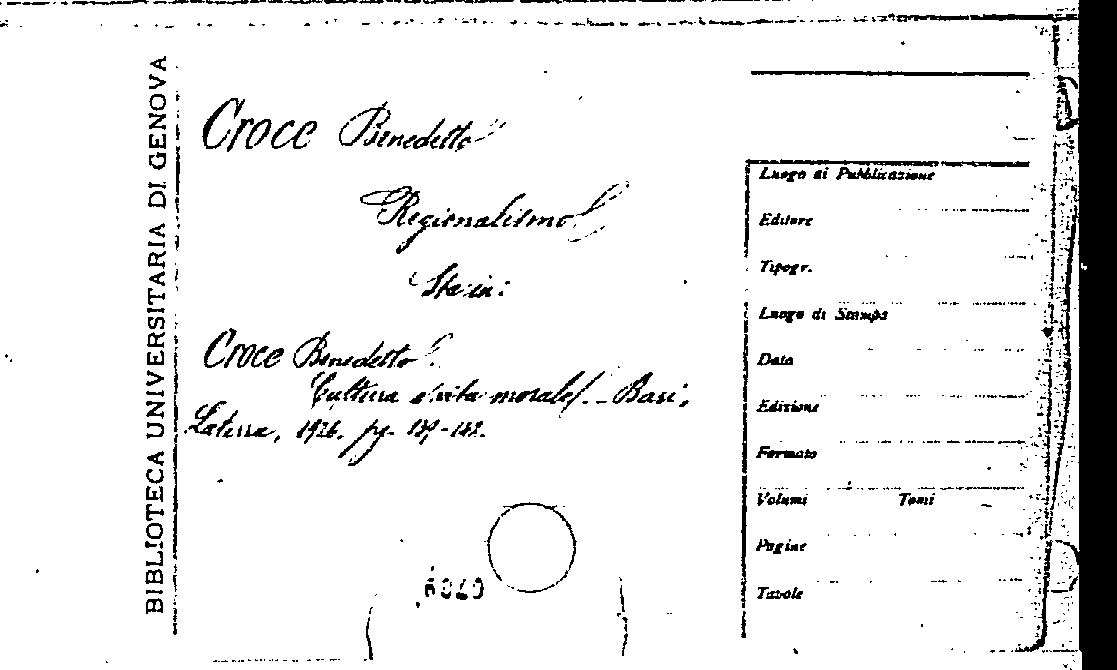 BIBLIOTECA UNIVERSITARIA DI GENOVA
Croce Benedetto
Regionalismo
Sta in:
Croce Benedetto
Cultura e vita morale. - Bari,
Laterza, 1926. pg. 139-143.
Luogo di Pubblicazione
Editore
Tipogr.
Luogo di Stampa
Data
Edizione
Formato
Volumi Tomi
Pagine
Tavole